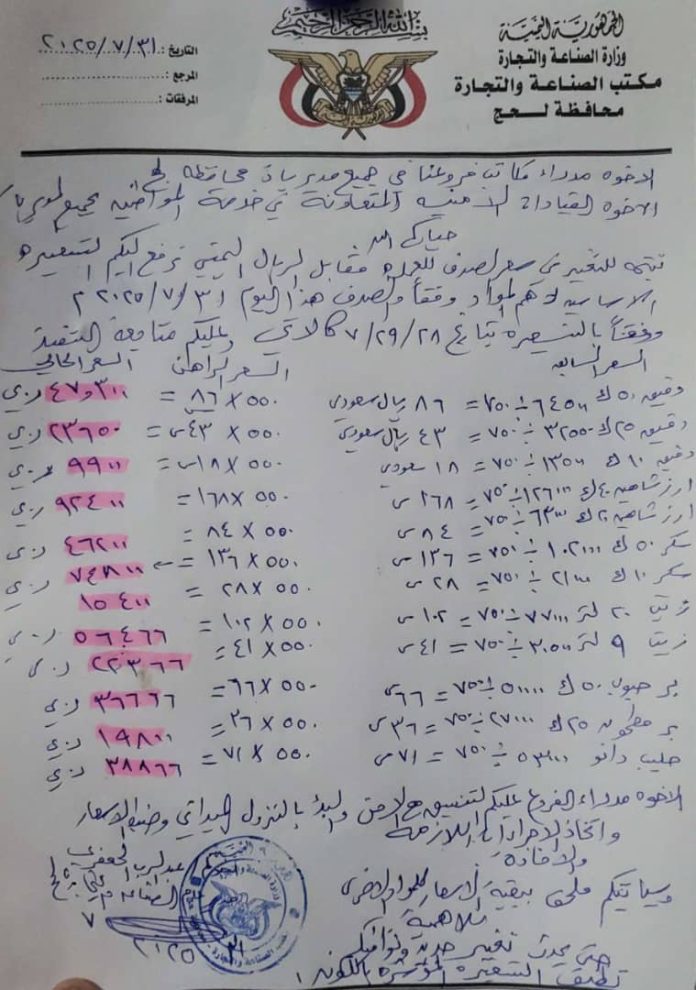 بسم الله الرحمن الرحيم
الجمهورية اليمنية
وزارة الصناعة والتجارة
مكتب الصناعة والتجارة
محافظة لحج
التاريخ: ٢٠٢٥/٧/٣١
المرجع:
المرفقات:
الاخوه مدراء مكاتب فروعنا في جميع مديريات محافظة لحج
الاخوه القيادات الامنيه المتعاونة في خدمة المواطنين بجميع المديريات
حياكم الله
نتيجة للتغير في سعر الصرف للعمله مقابل الريال اليمني نرفع اليكم التسعيره
الاساسيه لاهم المواد وفقاً والصرف هذا اليوم ٢٠٢٥/٧/٣١
وفقاً بالتسعيره بتاريخ ٧/٢٩/٢٨ كالاتي وعليكم متابعة التنفيذ
السعر السابق السعر الراهن السعر الحالي
دقيق ٥٠ ك ٦٤٥٠٠ ÷ ٧٥٠ = ٨٦ ريال سعودي ٥٥٠ X ٨٦ = ٤٧٣٠٠ ر.ي
دقيق ٢٥ ك ٣٢٥٠٠ ÷ ٧٥٠ = ٤٣ ريال سعودي ٥٥٠ X ٤٣ س = ٢٣٦٥٠ ر.ي
دقيق ١٠ ك ١٣٥٠٠ ÷ ٧٥٠ = ١٨ سعودي ٥٥٠ X ١٨ س = ٩٩٠٠ ر.ي
ارز شاهين ٤٠ ك ١٢٦٠٠٠ ÷ ٧٥٠ = ١٦٨ س ٥٥٠ X ١٦٨ = ٩٢٤٠٠ ر.ي
ارز شاهين ٢٠ ك ٦٣٠٠٠ ÷ ٧٥٠ = ٨٤ س ٥٥٠ X ٨٤ = ٤٦٢٠٠ ر.ي
سكر ٥٠ ك ١٠٢٠٠٠ ÷ ٧٥٠ = ١٣٦ س ٥٥٠ X ١٣٦ = ٧٤٨٠٠ ر.ي
سكر ١٠ ك ٢١٠٠٠ ÷ ٧٥٠ = ٢٨ س ٥٥٠ X ٢٨ = ١٥٤٠٠
زيت ٢٠ لتر ٧٧٠٠٠ ÷ ٧٥٠ = ١٠٢ س ٥٥٠ X ١٠٢ = ٥٦٤٦٦ ر.ي
زيت ٩ لتر ٣٠٥٠٠ ÷ ٧٥٠ = ٤١ س ٥٥٠ X ٤١ = ٢٢٣٦٦ ر.ي
بر حبوب ٥٠ ك ٥٠٠٠٠ ÷ ٧٥٠ = ٦٦ س ٥٥٠ X ٦٦ = ٣٦٦٦٦ ر.ي
بر مطحون ٢٥ ك ٢٧٠٠٠ ÷ ٧٥٠ = ٣٦ س ٥٥٠ X ٣٦ = ١٩٨٠٠ ر.ي
حليب دانو ٥٣٠٠٠ ÷ ٧٥٠ = ٧١ س ٥٥٠ X ٧١ = ٣٨٨٦٦ ر.ي
الاخوه مدراء الفروع عليكم التنسيق مع الامن والبدؤ بالنزول الميداني وضبط الاسعار
واتخاذ الاجراءات اللازمة
والافادة
وسيأتيكم ملحق ببقية الاسعار للمواد الاخرى
للاهمية
حتى يحدث تغيير جديد ونوافيكم
تطبق التسعيره المؤشره باللون
عبدالرب الجعفري
٧
٣١
٢٠٢٥